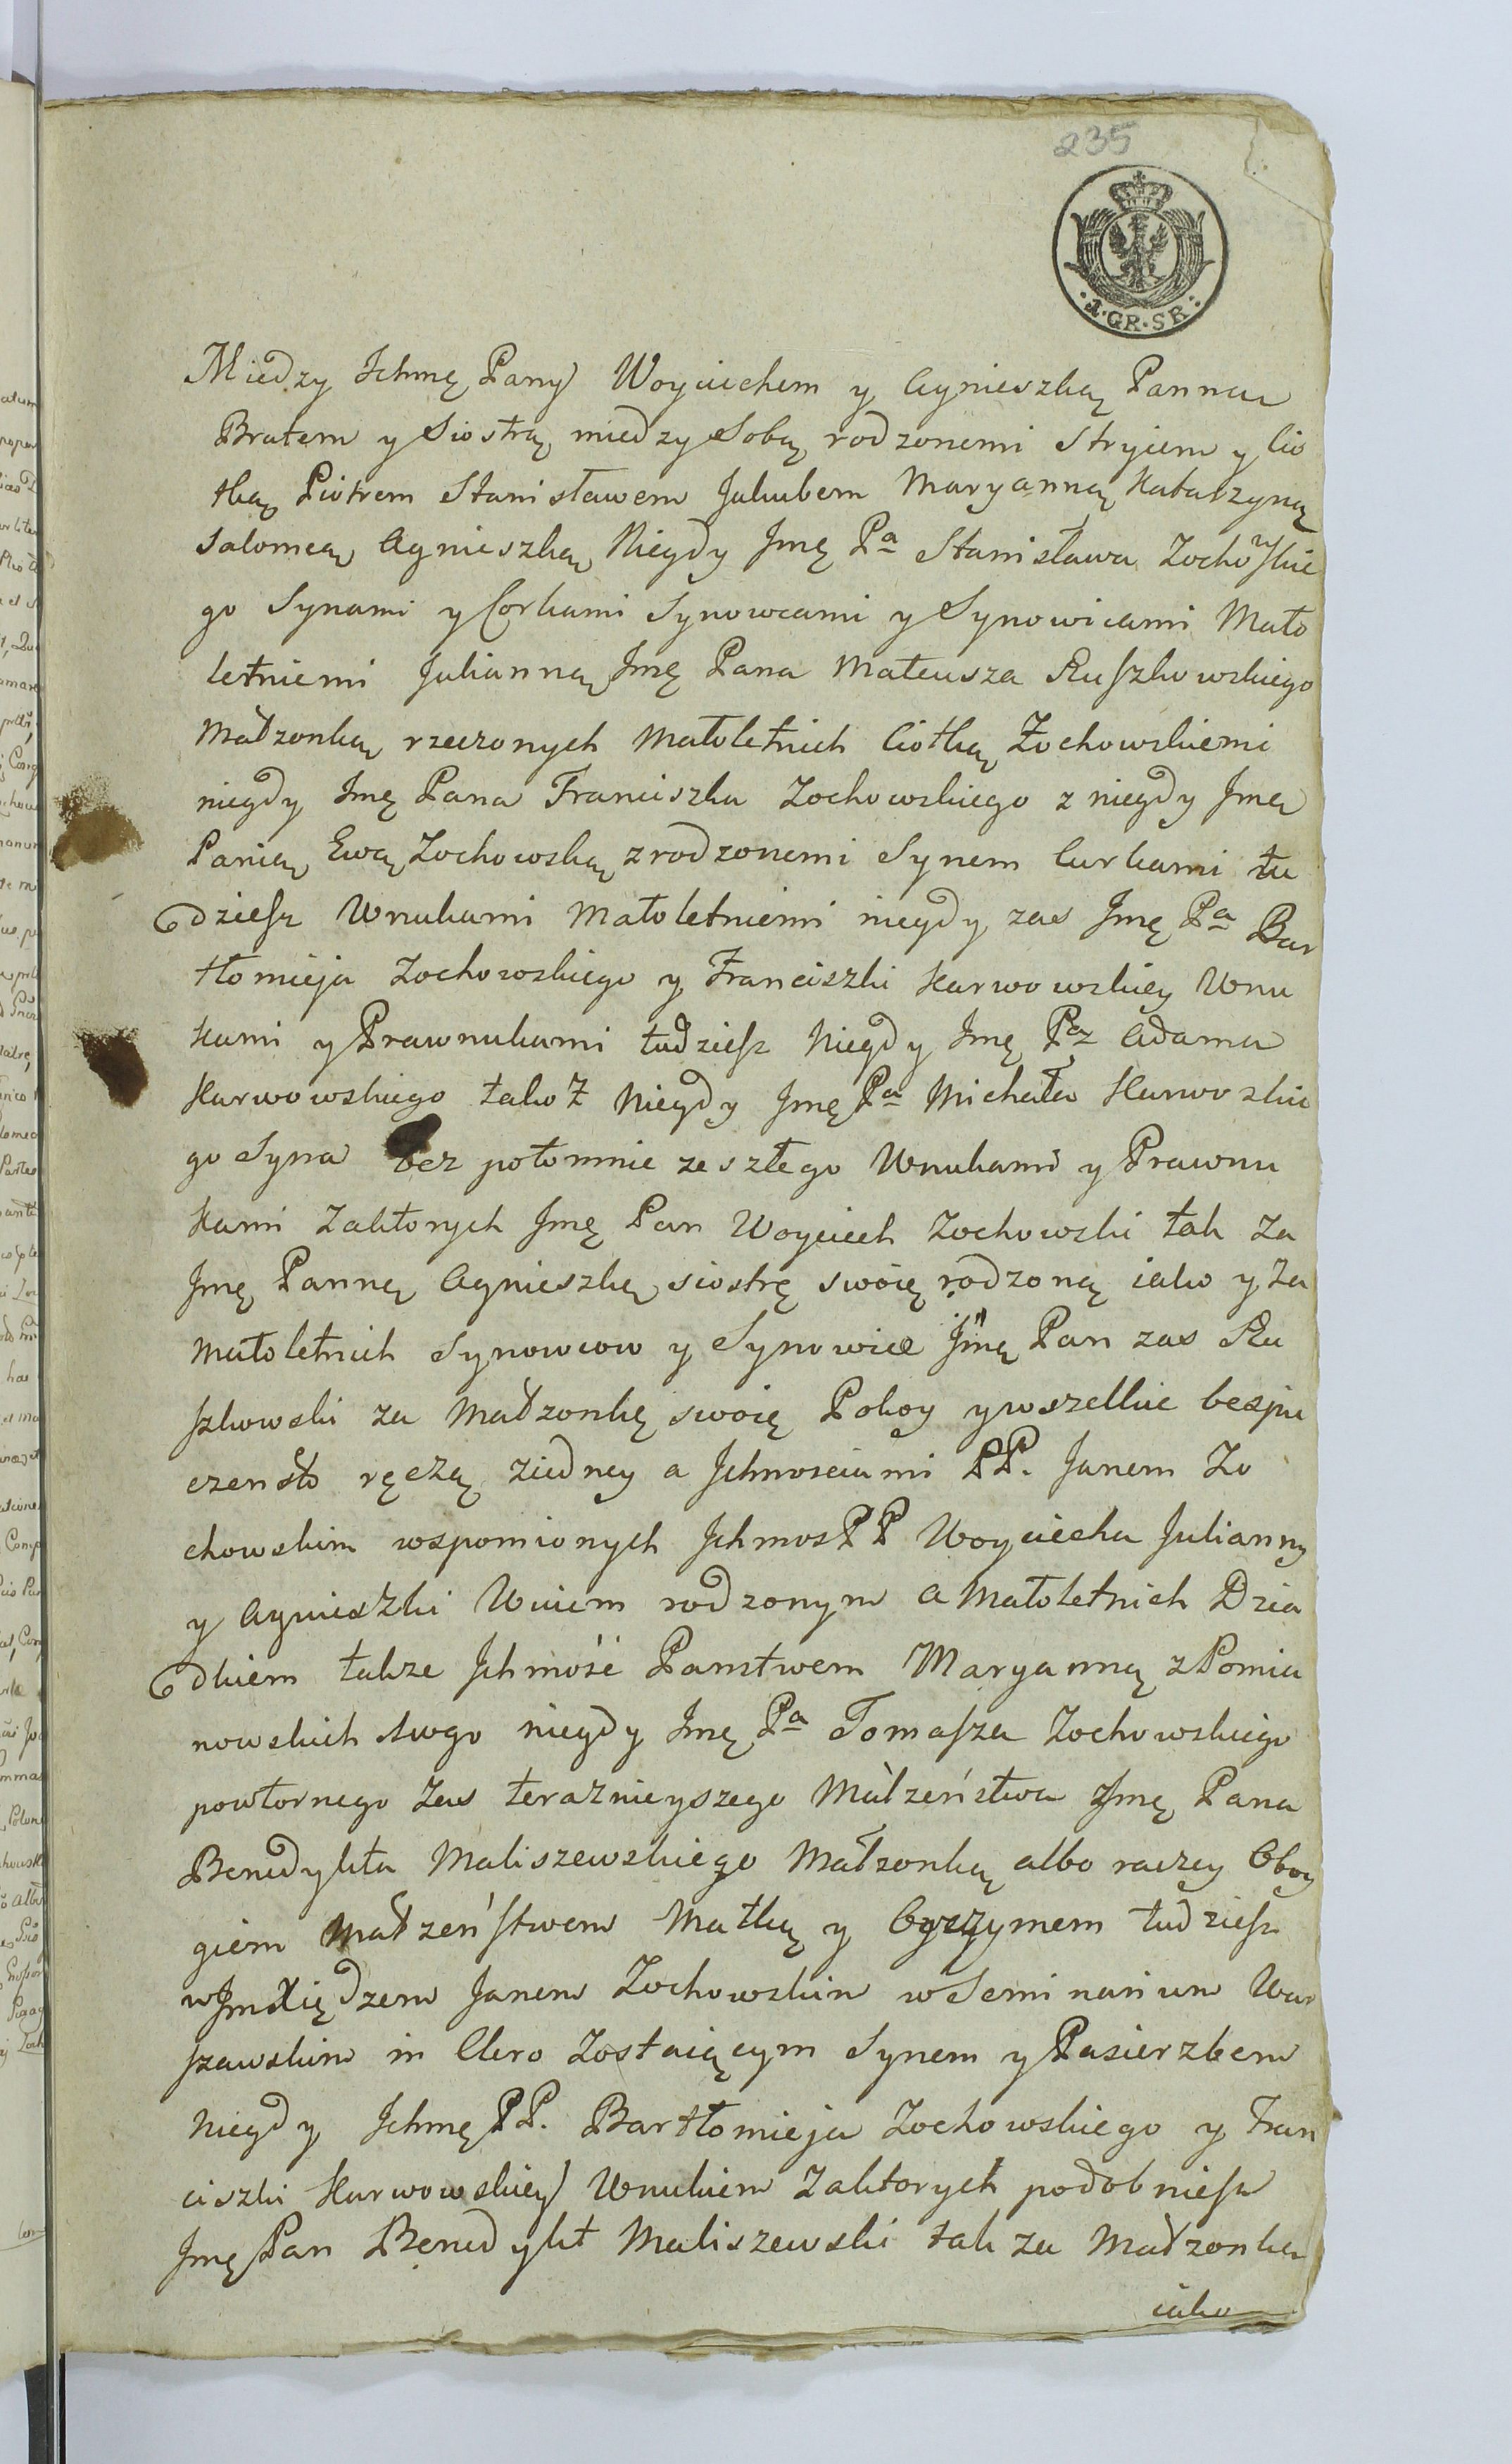 235
1·GR·SR:
Miedzy Ichmę Pany Woyciechem y Agnieszką Panną
Bratem y Siostrą miedzy Sobą rodzonemi Stryiem y Cio
tką Piotrem Stanisławem Jakubem Maryanną Katarzyną
Salomeą Agnieszką Niegdy Jmę Pa Stanisława Zochowskie
go Synami y Corkami Synowcami y Synowicami Mało
letniemi Julianną Jmę Pana Mateusza Ruszkowskiego
Małzonką rzeczonych Małoletnich Ciotką Żochowskiemi
niegdy Jmę Pana Franciszka Zochowskiego z niegdy Jmę
Panią Ewą Zochowską zrodzonemi Synem Curkami tu
dziesz Wnukami Małoletniemi niegdy zas Jmę Pa Bar
tłomieja Zochowskiego y Franciszki Karwowskiey Wnu
kami y Prawnukami tudziesz Niegdy Jmę Adama
Karwowskiego takoż Niegdy Jmę Pa Michała Karwoskie
go Syna bez potomnie zeszłego Wnukami y Prawnu
kami Zaktorych Jmę Pan Woyciech Zochowski tak Za
Jmę Pannę Agnieszkę siostrę swoię rodzoną iako y Za
Małoletnich Synowcow y Synowice Jmę Pan zas Ru
szkowski za Małzonkę swoię Pokoy y wszelkie bespie
czensto ręczą ziedney a Jchmosciami PP. Janem Zo
chowskim wspomionych Jchmos PP Woyciecha Julianny
y Agnieszki Wuiem rodzonym a Małoletnich Dzia
dkiem takze Jchmość Panstwem Maryanną z Pomia
nowskich 1wgo niegdy Jmę Pa Tomasza Zochowskiego
powtornego Zas teraznieyszego Małżeństwa Jmę Pana
Benedykta Maliszewskiego Małzonką albo raczey Oboy
giem Małżeństwem Matką y Oyczymem tudziesz
w Jm Xiędzem Janem Zochowskim w Seminarium War
szawskim in Clero Zostaiącym Synem y Pasierzbem
Niegdy Jchmę PP. Bartłomieja Zochowskiego y Fran
ciszki Karwowskiey Wnukiem Zaktorych podobniesz
Jmę Pan Benedykt Maliszewski tak za Małzonkę
iako